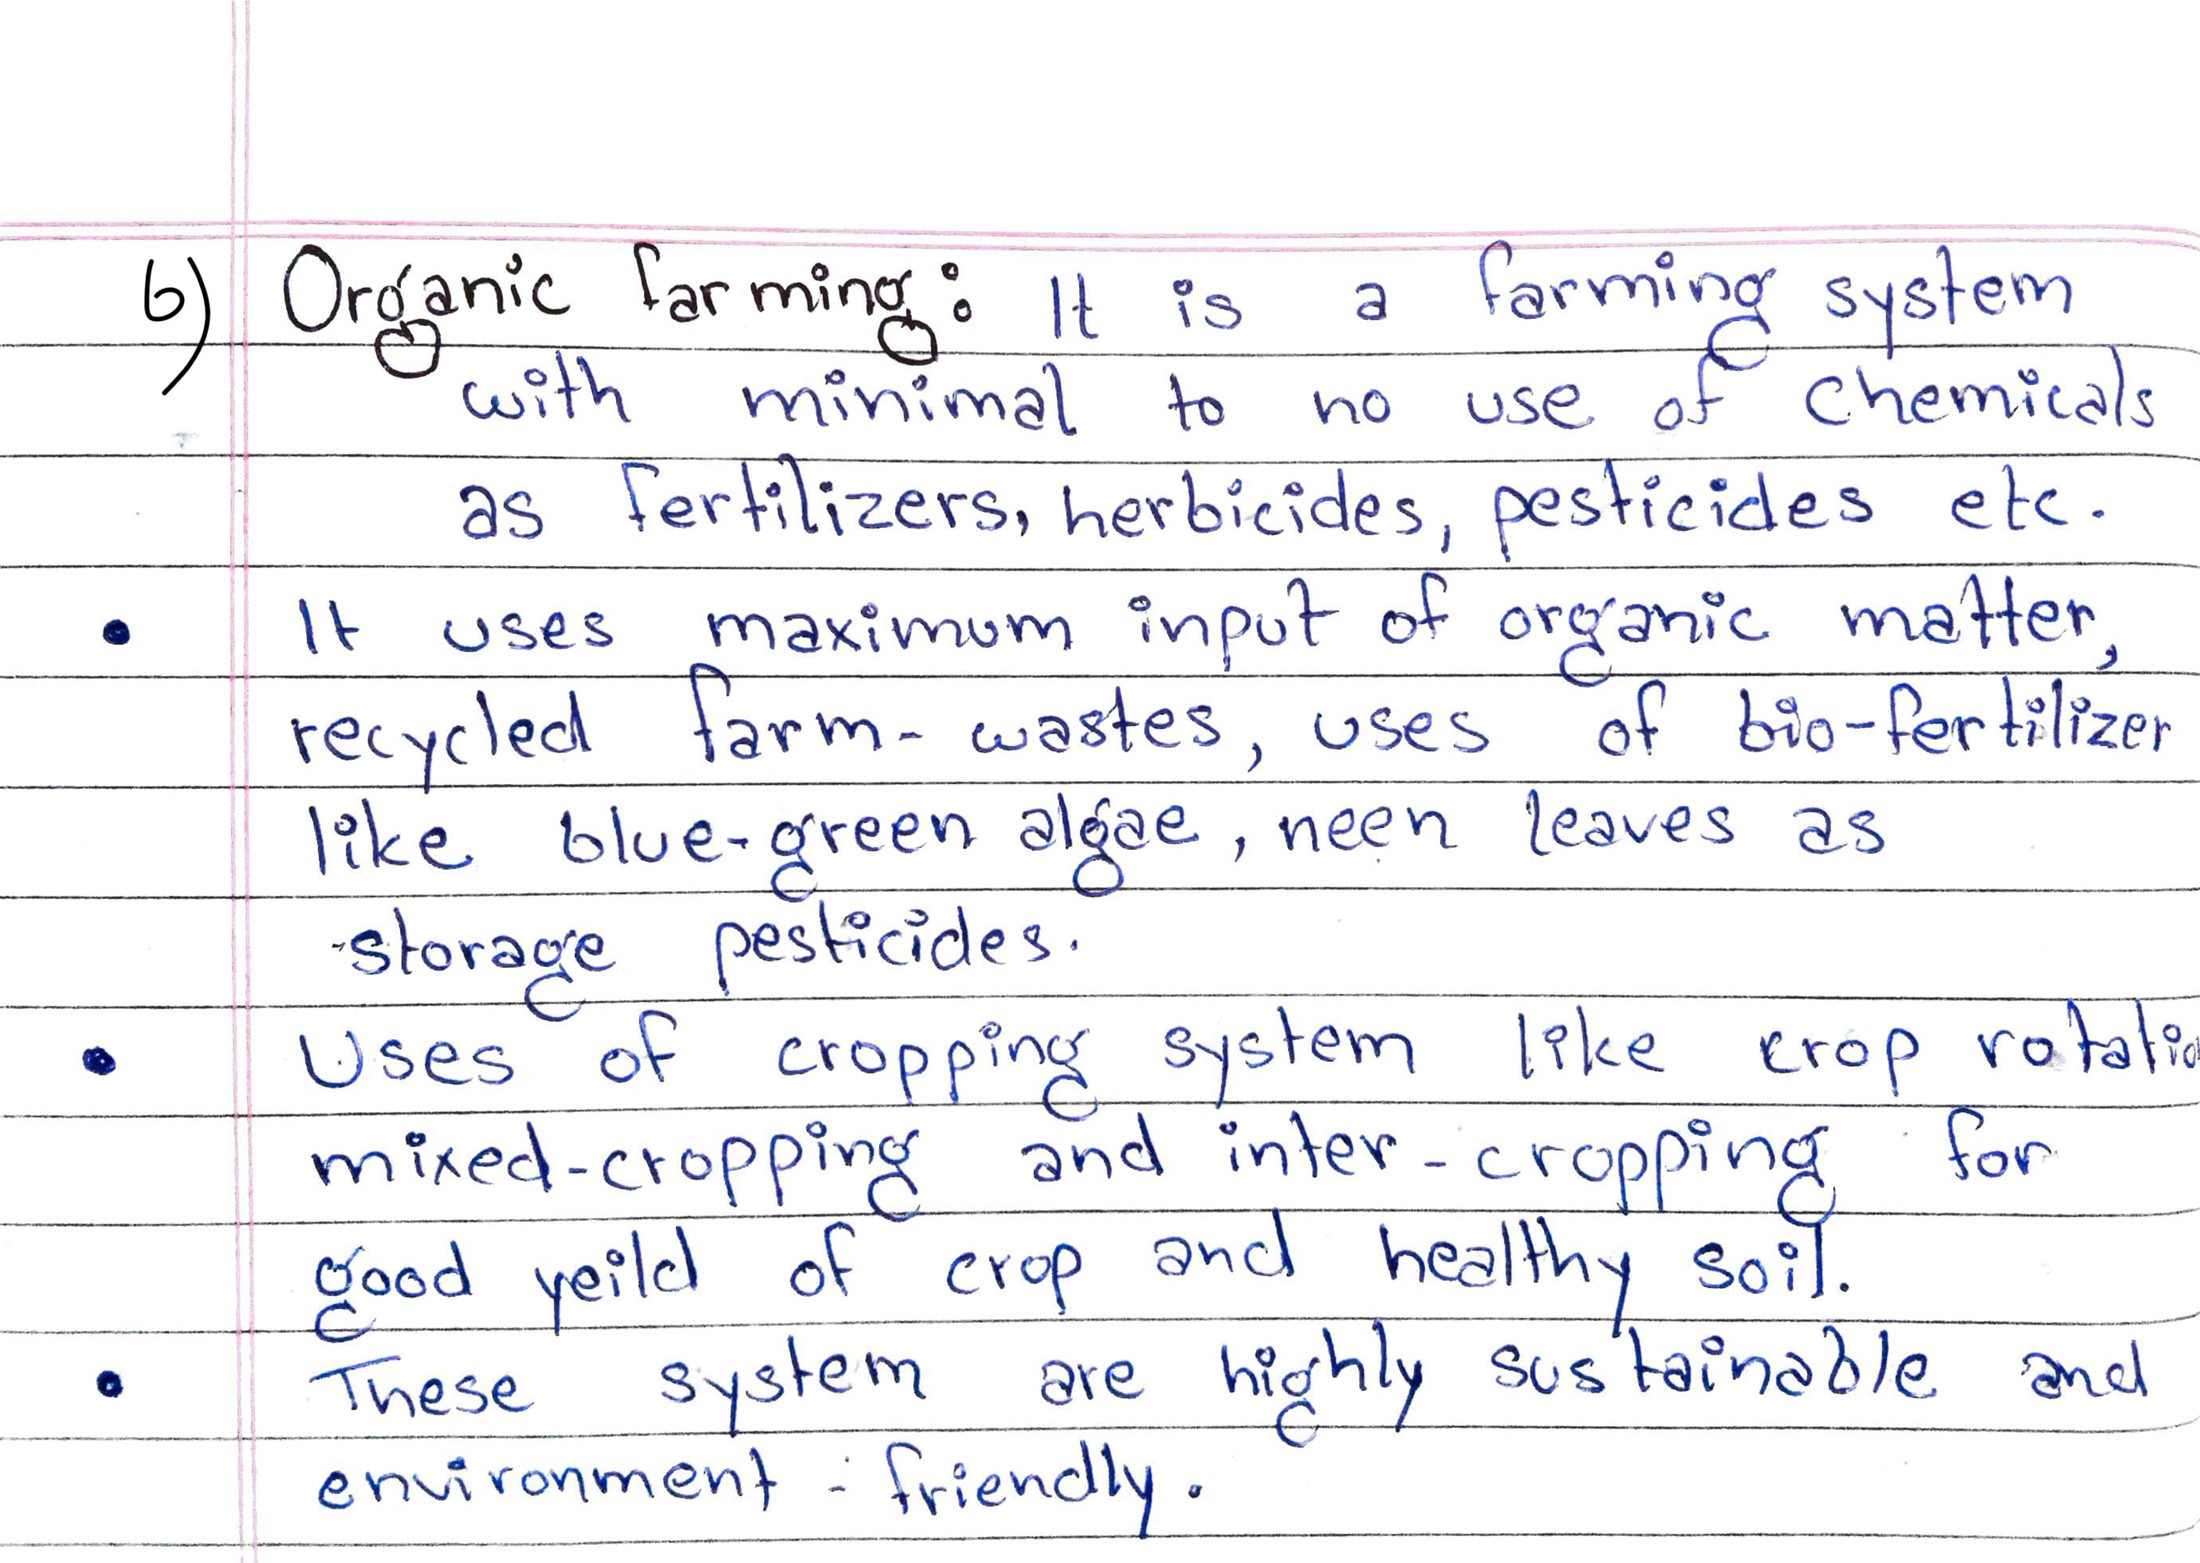 6) Organic farming: It is a farming system
with minimal to no use of chemicals
as fertilizers, herbicides, pesticides etc.
• It uses maximum input of organic matter,
recycled farm-wastes, uses of bio-fertilizer
like blue-green algae, neen leaves as
storage pesticides.
• Uses of cropping system like crop rotatio
mixed-cropping and inter-cropping for
good yeild of crop and healthy soil.
• These system are highly sustainable and
environment-friendly.